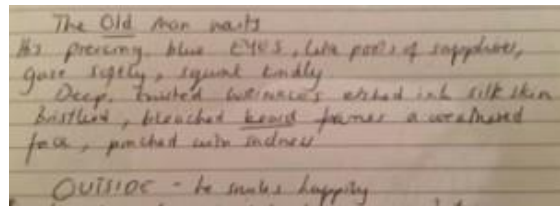 The Old man waits
His piercing blue EYES, like pools of sapphires,
gaze softly, squint kindly
Deep, trusted wrinkles etched into silk skin
bristled, bleached beard frames a weathered
face, pinched with sadness
OUTSIDE - he smiles happily